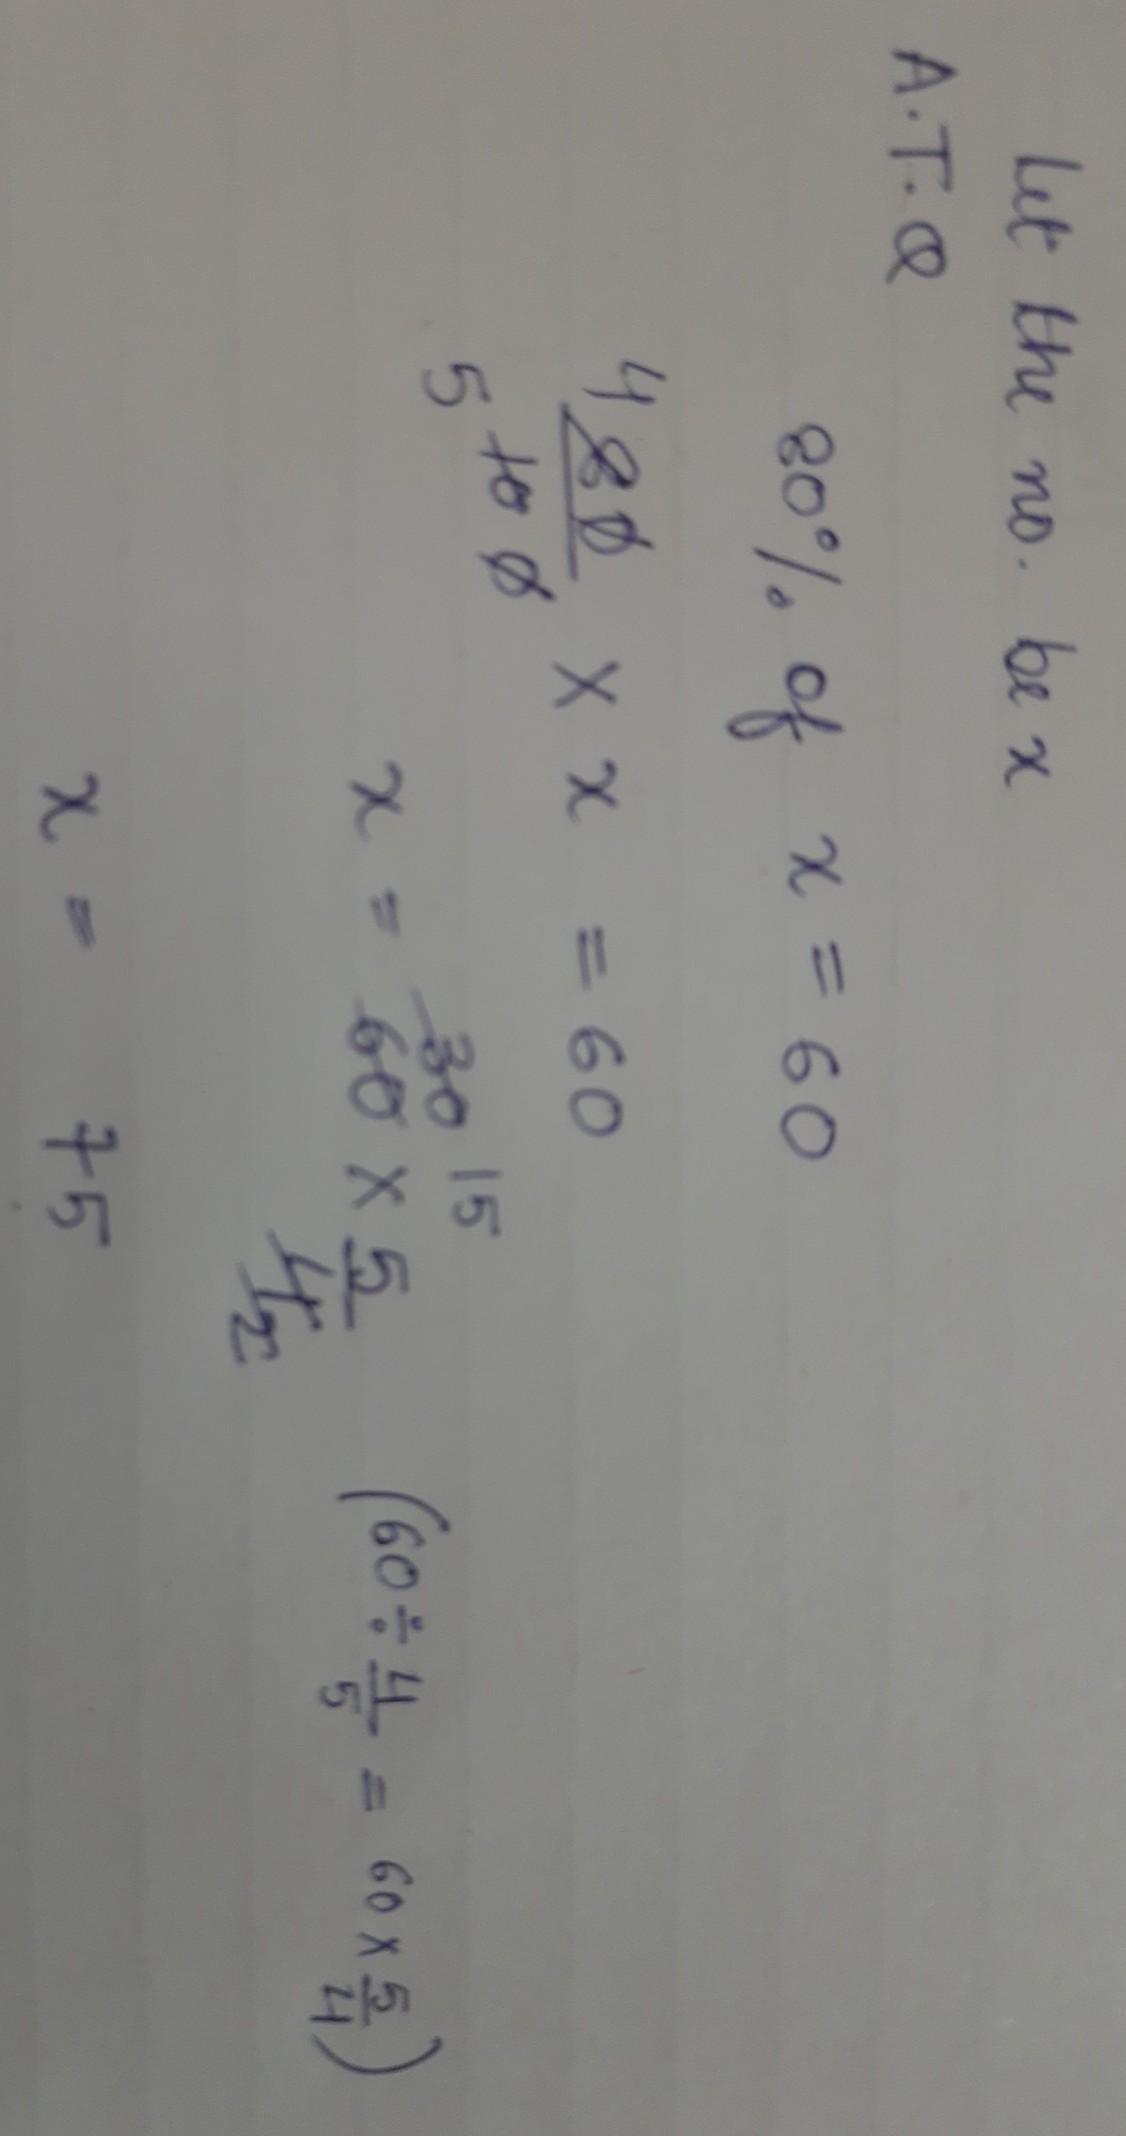 Let the no. be x
A.T.Q
80% of x = 60
4 80/5 100 × x = 60
x = 60 30 15 × 5/4 2 (60 ÷ 4/5 = 60 × 5/4)
x = 75